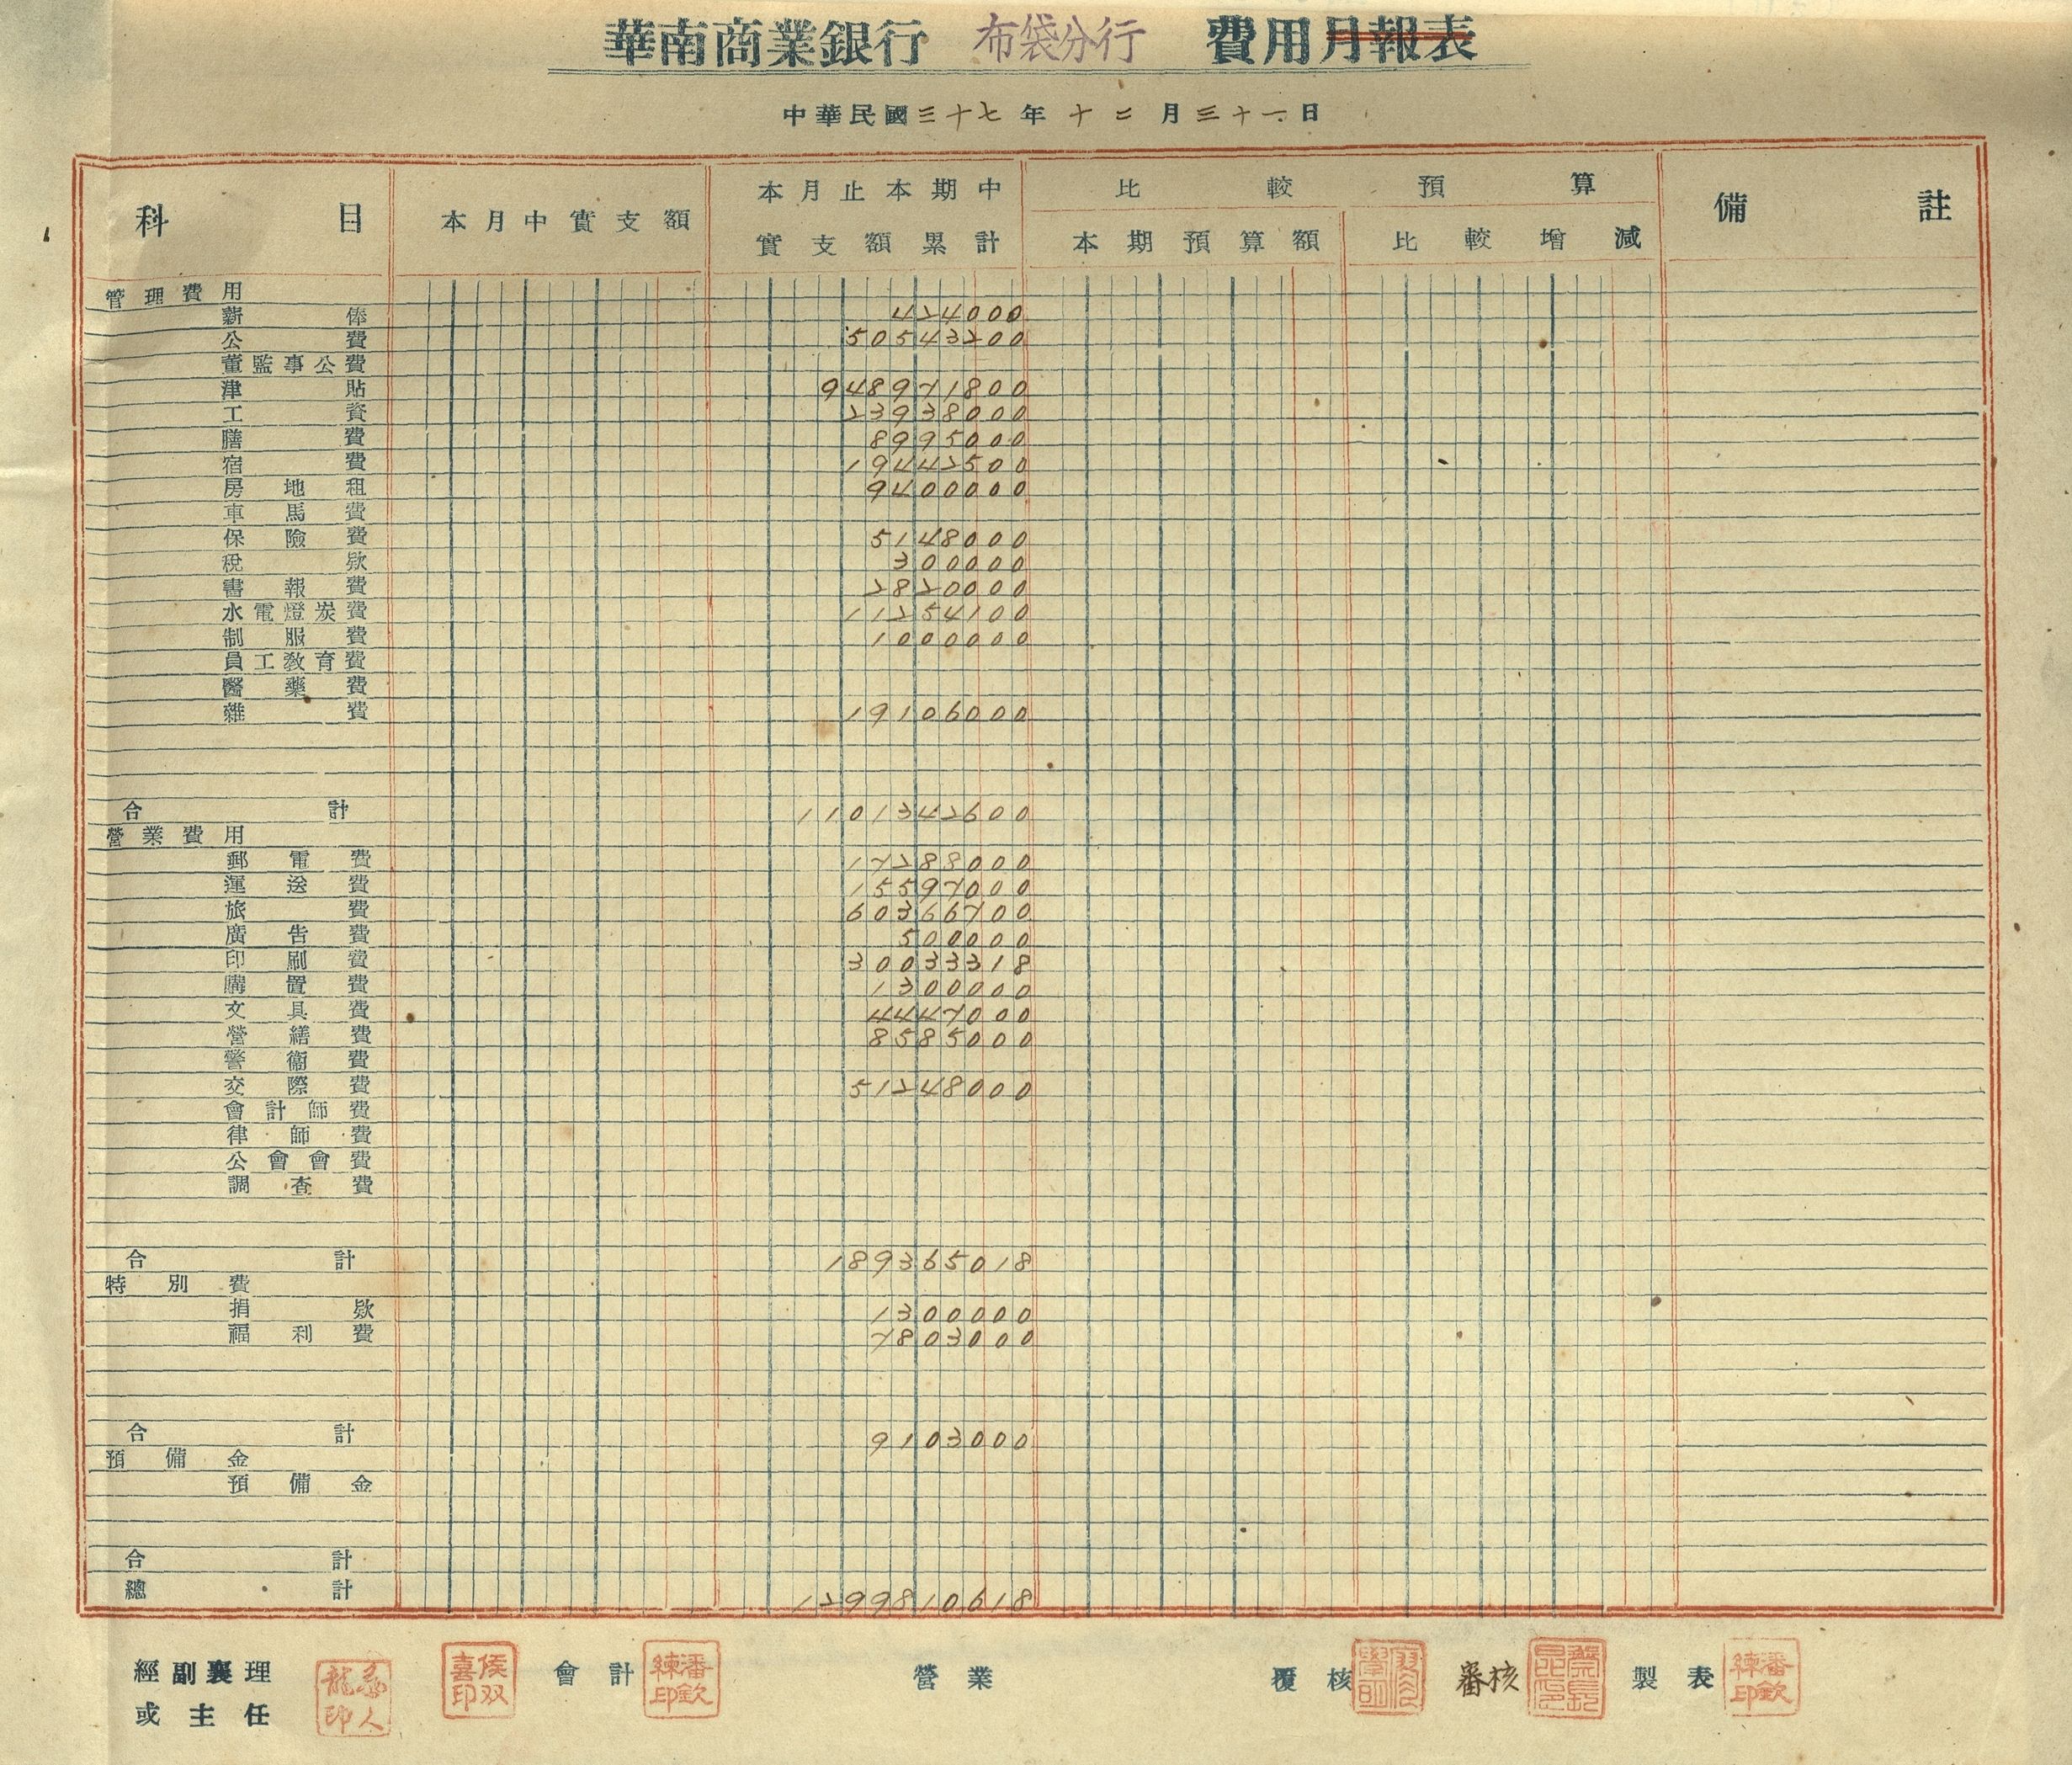 華南商業銀行 布袋分行 費用月報表
中華民國三十七年十二月三十一日
科目 本月中實支額 本月止本期中實支額累計 比較預算 備註
本期預算額 比較增減
管理費用
薪俸 424000
公費 50543200
董監事公費
津貼 948971800
工資 23938000
膳費 8995000
宿費 19442500
房地租 9400000
車馬費
保險費 5148000
稅欵 300000
書報費 2820000
水電燈炭費 11254100
制服費 1000000
員工教育費
醫藥費
雜費 19106000
合計 1101342600
營業費用
郵電費 17288000
運送費 15597000
旅費 60366700
廣告費 500000
印刷費 30033318
購置費 1300000
文具費 4447000
營繕費 8585000
警衞費
交際費 51248000
會計師費
律師費
公會會費
調查費
合計 189365018
特別費
捐欵 1300000
福利費 7803000
合計 9103000
預備金
預備金
合計
總計 1299810618
經副襄理或主任 侯双喜印 會計 潘欽練印 營業 覆核 審核 製表 潘欽練印